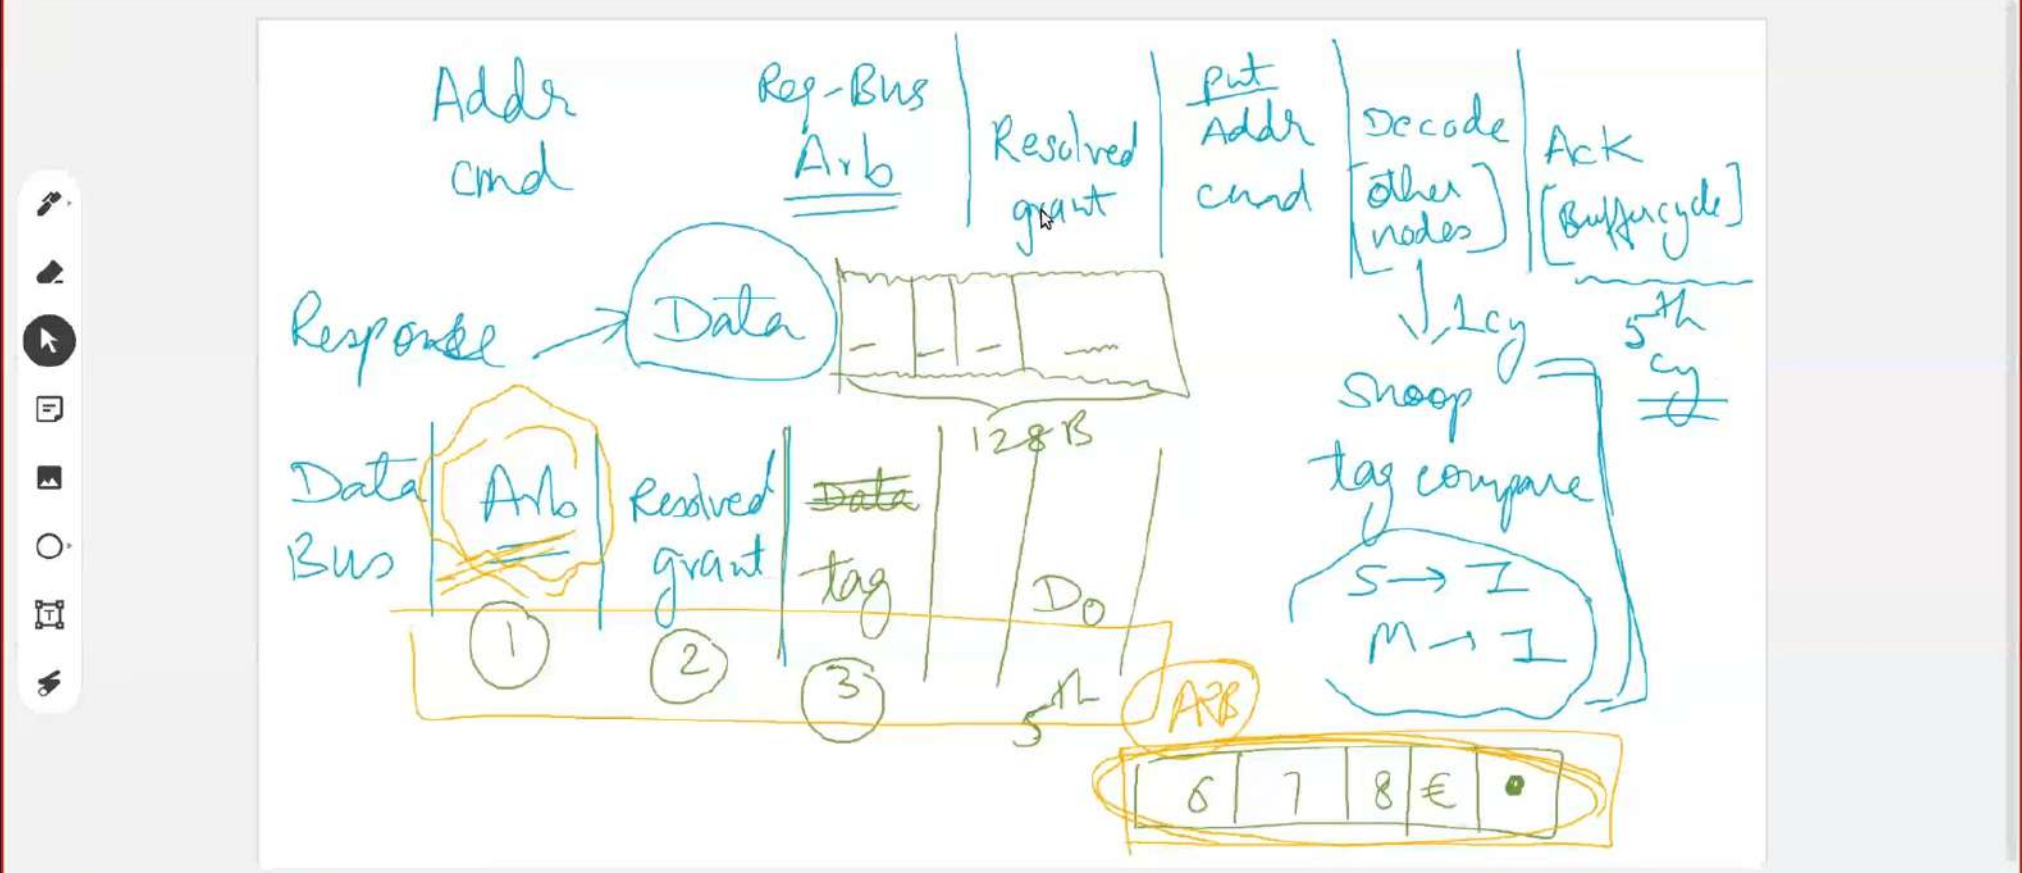 Addr
cmd
Req-Bus
Arb
Resolved
grant
put
Addr
cmd
Decode
[other
nodes]
Ack
[Buffercycle]
5th
cy
1cy
Snoop
tag compare
S → I
M → I
Response → Data
128B
Data
Bus
Arb
Resolved
grant
Data
tag
D0
1
2
3
5th
ARB
6 7 8 €